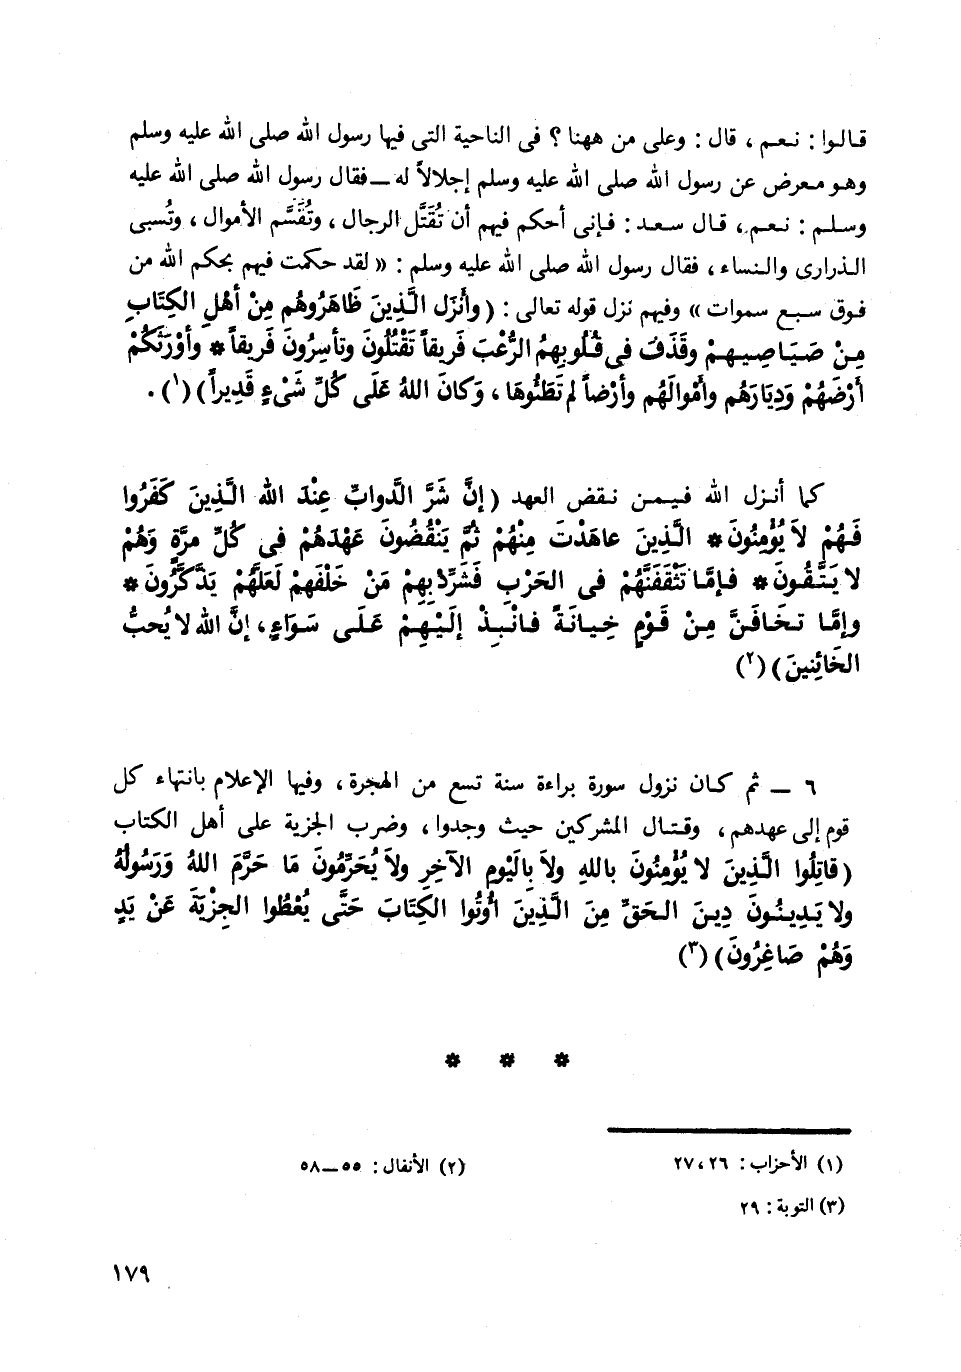 قالوا : نعم ، قال : وعلى من ههنا ؟ فى الناحية التى فيها رسول الله صلى الله عليه وسلم
وهو معرض عن رسول الله صلى الله عليه وسلم إجلالاً له ــ فقال رسول الله صلى الله عليه
وسلم : نعم ، قال سعد : فإنى أحكم فيهم أن تُقَتَّل الرجال ، وتُقَسَّم الأموال ، وتُسبى
الذرارى والنساء ، فقال رسول الله صلى الله عليه وسلم : « لقد حكمت فيهم بحكم الله من
فوق سبع سموات » وفيهم نزل قوله تعالى : ( وأَنزَل الَّذِينَ ظَاهَرُوهُم مِنْ أهْلِ الكِتَابِ
مِنْ صَيَاصِيهِمْ وقَذَفَ فى قُلُوبِهِمُ الرُّعْبَ فَرِيقاً تَقْتُلُونَ وتأسِرُونَ فَرِيقاً * وأوْرَثَكُمْ
أرْضَهُمْ وَدِيَارَهُم وأمْوالَهُم وأرْضاً لم تَطَئُوهَا ، وَكانَ اللهُ عَلَى كُلِّ شَىْءٍ قَدِيراً ) (١) .
كما أنزل الله فيمن نقض العهد ( إنَّ شَرَّ الدَّوابِّ عِنْدَ الله الَّذِينَ كَفَرُوا
فَهُمْ لاَ يُؤْمِنُونَ * الَّذِينَ عاهَدْتَ مِنْهُمْ ثُمَّ يَنْقُضُونَ عَهْدَهُمْ فى كُلِّ مرَّةٍ وَهُمْ
لا يَتَّقُونَ * فإمَّا تَثْقَفَنَّهُمْ فى الحَرْبِ فَشَرِّدْ بِهِمْ مَنْ خَلْفَهمْ لَعَلَّهُمْ يَذَّكَّرُونَ *
وإمَّا تخَافَنَّ مِنْ قَوْمٍ خِيانَةً فانْبِذْ إلَيْهِمْ عَلَى سَوَاءٍ ، إنَّ الله لا يُحبُّ
الخَائِنينَ ) (٢)
٦ ــ ثم كان نزول سورة براءة سنة تسع من الهجرة ، وفيها الإعلام بانتهاء كل
قوم إلى عهدهم ، وقتال المشركين حيث وجدوا ، وضرب الجزية على أهل الكتاب
( قاتِلُوا الَّذِينَ لا يُؤْمِنُونَ باللهِ ولاَ بِالَيْومِ الآخِرِ ولاَ يُحَرِّمُونَ مَا حَرَّمَ اللهُ وَرَسُولُهُ
ولا يَدِينُونَ دِينَ الحَقِّ مِنَ الَّذِينَ أُوتُوا الكِتَابَ حَتَّى يُعْطُوا الجِزْيَةَ عَنْ يَدٍ
وَهُمْ صَاغِرُونَ ) (٣)
* * *
(١) الأحزاب : ٢٦ ، ٢٧ (٢) الأنفال : ٥٥ ــ ٥٨
(٣) التوبة : ٢٩
١٧٩